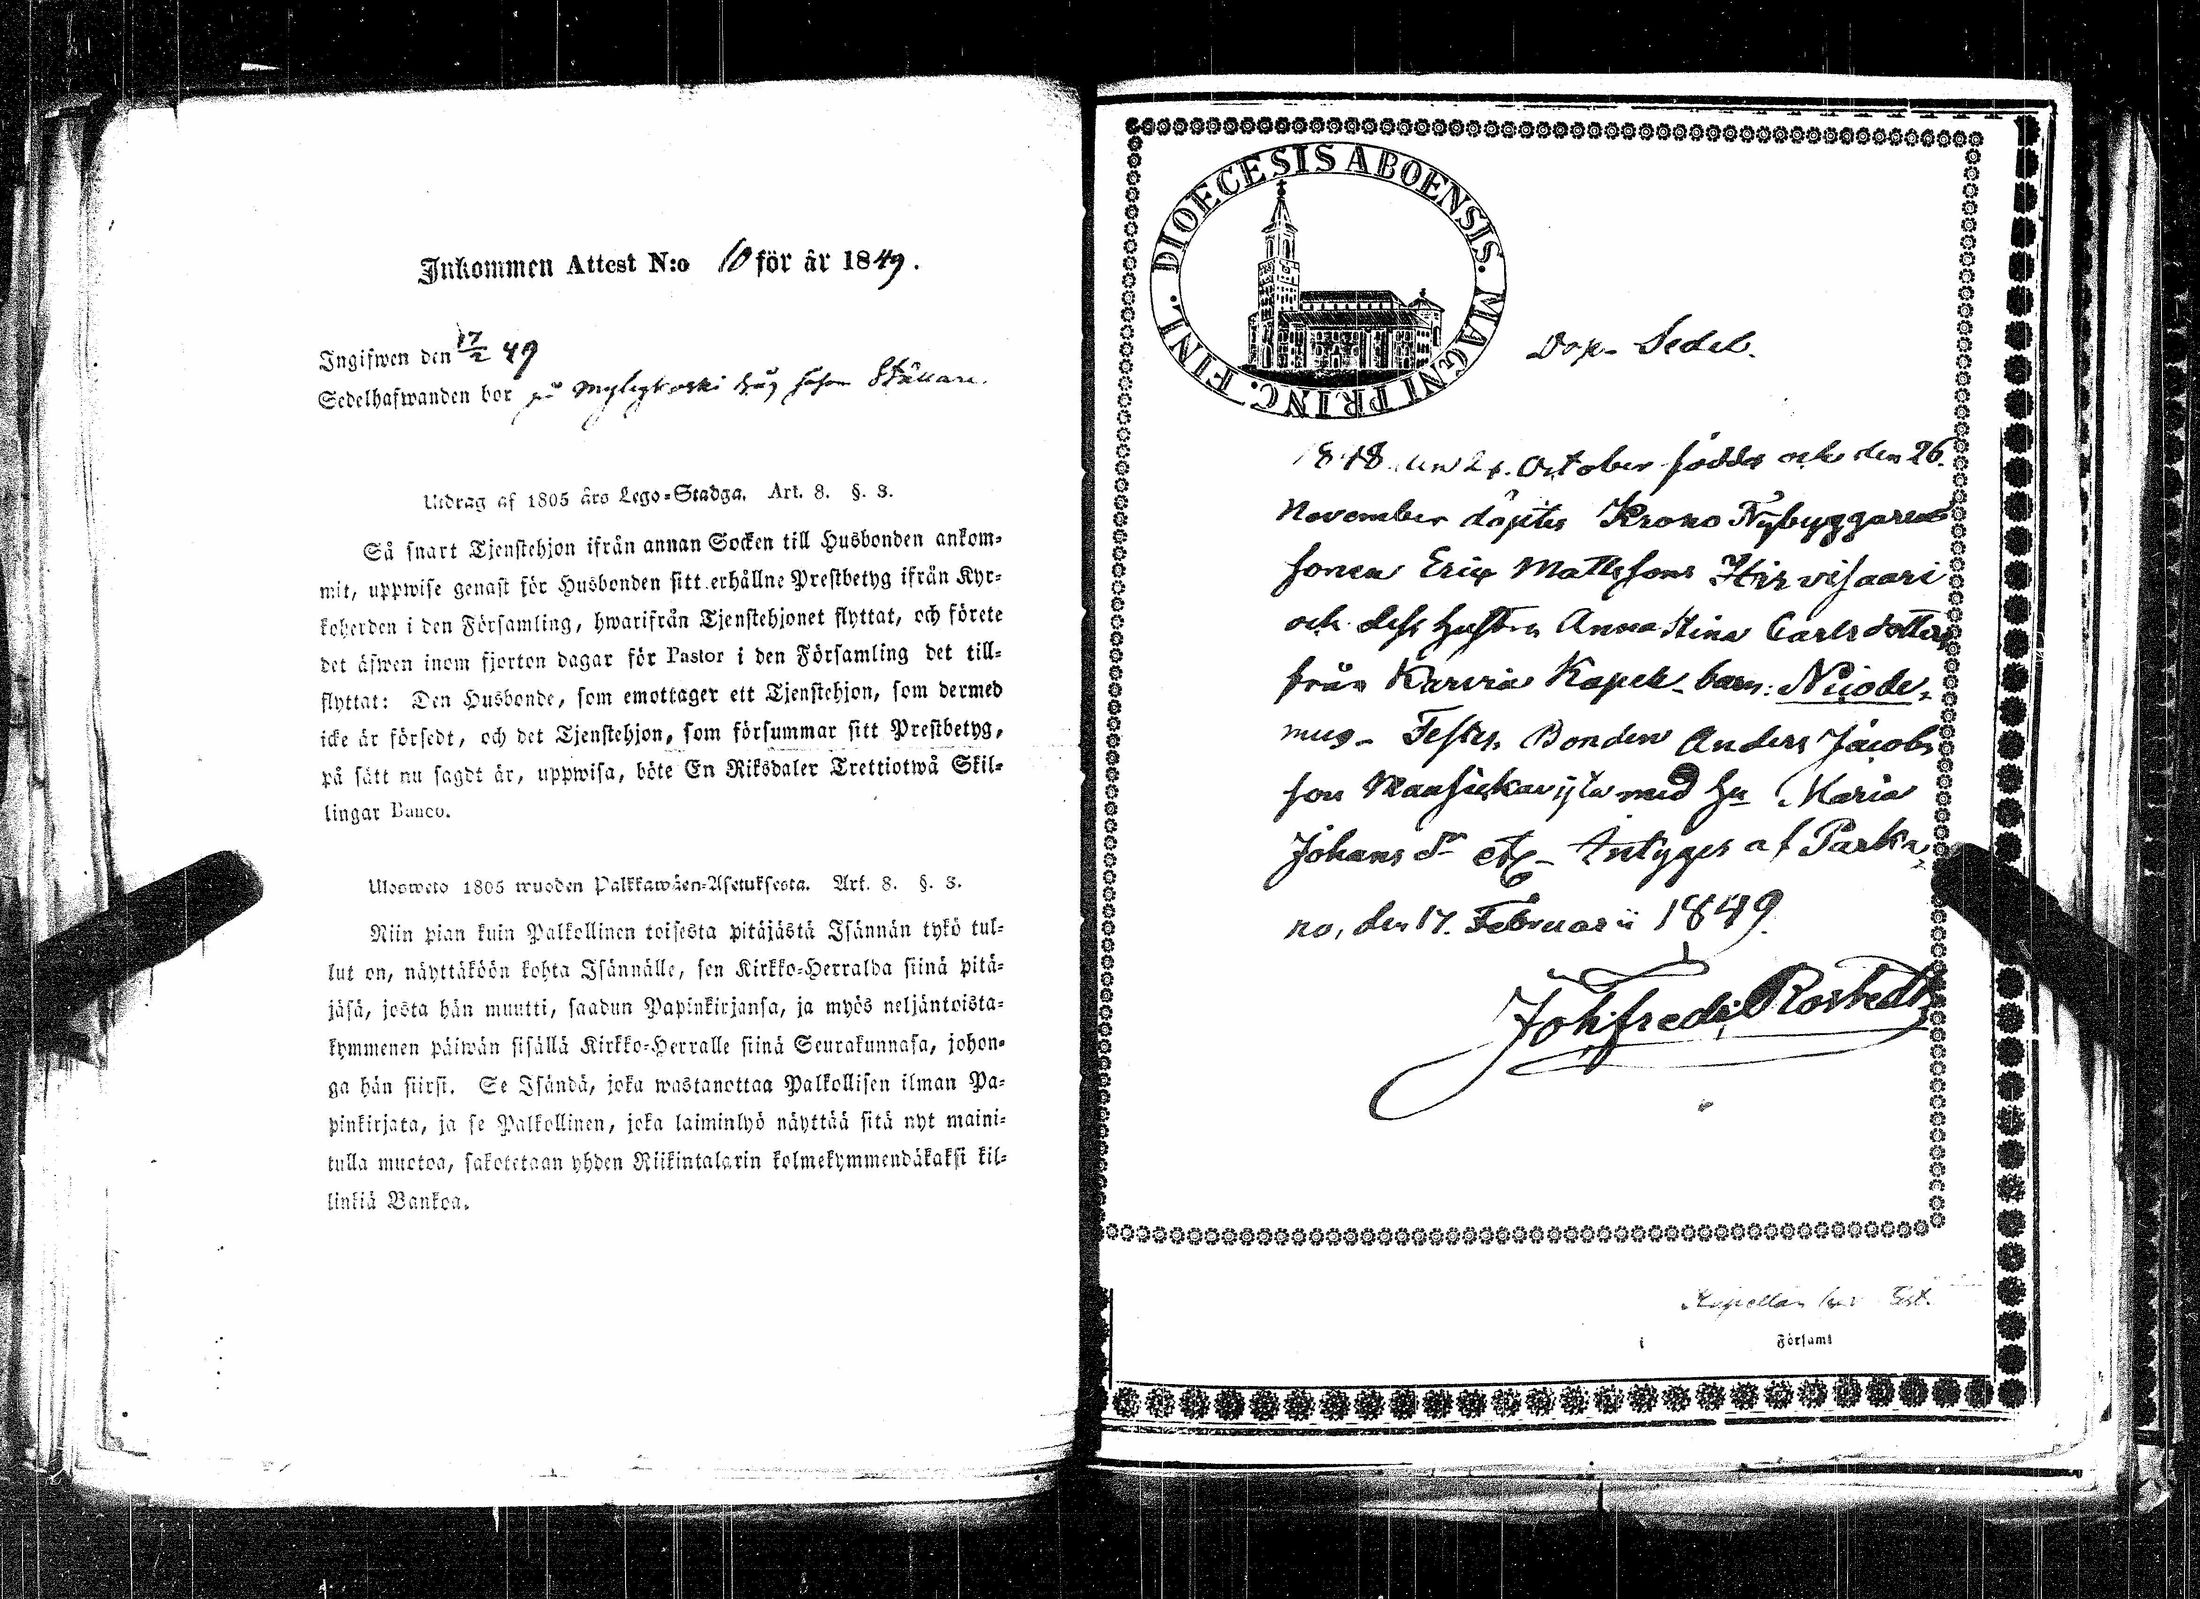 Inkommen Attest N:o 10 för år 1849.
Ingifwen den 17/2 49
Sedelhafwanden bor på
Utdrag af 1805 års Lego-Stadga. Art. 8. §. 3.
Så snart Tjenstehjon ifrån annan Socken till Husbonden ankom-
mit, uppwise genast för Husbonden sitt erhållne Prestbetyg ifrån Kyr-
koherden i den Församling, hwarifrån Tjenstehjonet flyttat, och förete
det äfwen inom fjorton dagar för Pastor i den Församling det till-
flyttat: Den Husbonde, som emottager ett Tjenstehjon, som dermed
icke är försedt, och det Tjenstehjon, som försummar sitt Prestbetyg,
på sätt nu sagdt är, uppwisa, böte En Riksdaler Trettiotwå Skil-
lingar Banco.
Ulosweto 1805 wuoden Palkkawäen-Asetuksesta. Art. 8. §. 3.
Niin pian kuin Palkollinen toisesta pitäjästä Isännän tykö tul-
lut on, näyttäköön kohta Isännälle, sen Kirkko-Herralda siinä pitä-
jäsä, josta hän muutti, saadun Papinkirjansa, ja myös neljäntoista-
kymmenen päiwän sisällä Kirkko-Herralle siinä Seurakunnasa, johon-
ga hän siirsi. Se Isändä, joka wastanottaa Palkollisen ilman Pa-
pinkirjata, ja se Palkollinen, joka laiminlyö näyttää sitä nyt maini-
tulla muotoa, sakotetaan yhden Riikintalarin kolmekymmendäkaksi kil-
linkiä Bankoa.
DIOECESIS ABOENSIS. MAGNI PRINC. FINL.
Dop-Sedel.
1848 den October födds och den 26.
November döptes Krono Nybyggaren
sonen Eric Mattssons Hirvisaari
och dess hustru Anna Stina Carlsdotters
från Karvia Kapell barn: Nicode-
mus. Testes, Bonden Anders Jacobs
son med hu Maria
Johans dr etc. Intyges af Parka
no, den 17. Februarii 1849.
Joh: Fredr: Rostedt
Kapellan
i Församl